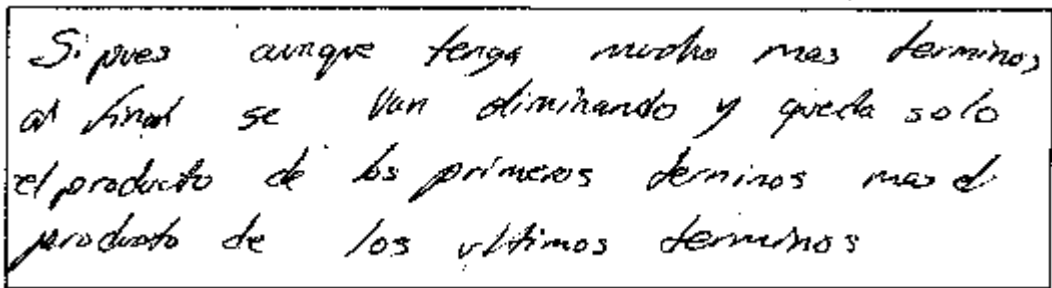 Si pues aunque tenga mucho mas terminos
al final se van eliminando y queda solo
el producto de los primeros terminos mas el
producto de los ultimos terminos